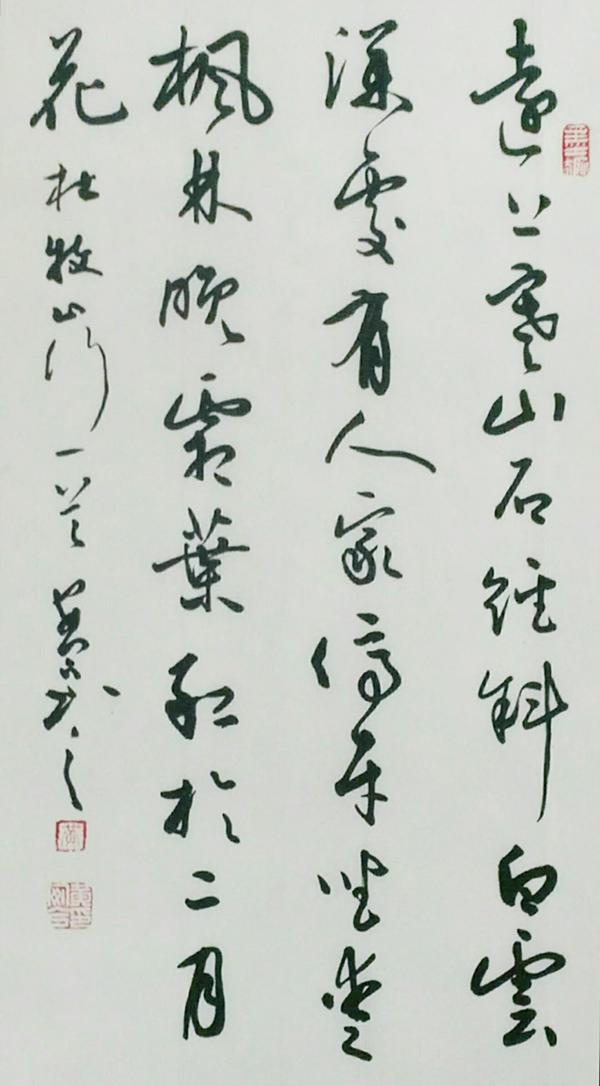 遠上寒山石徑斜白雲
深處有人家停車坐愛
楓林晚霜葉紅於二月
花 杜牧山行一首